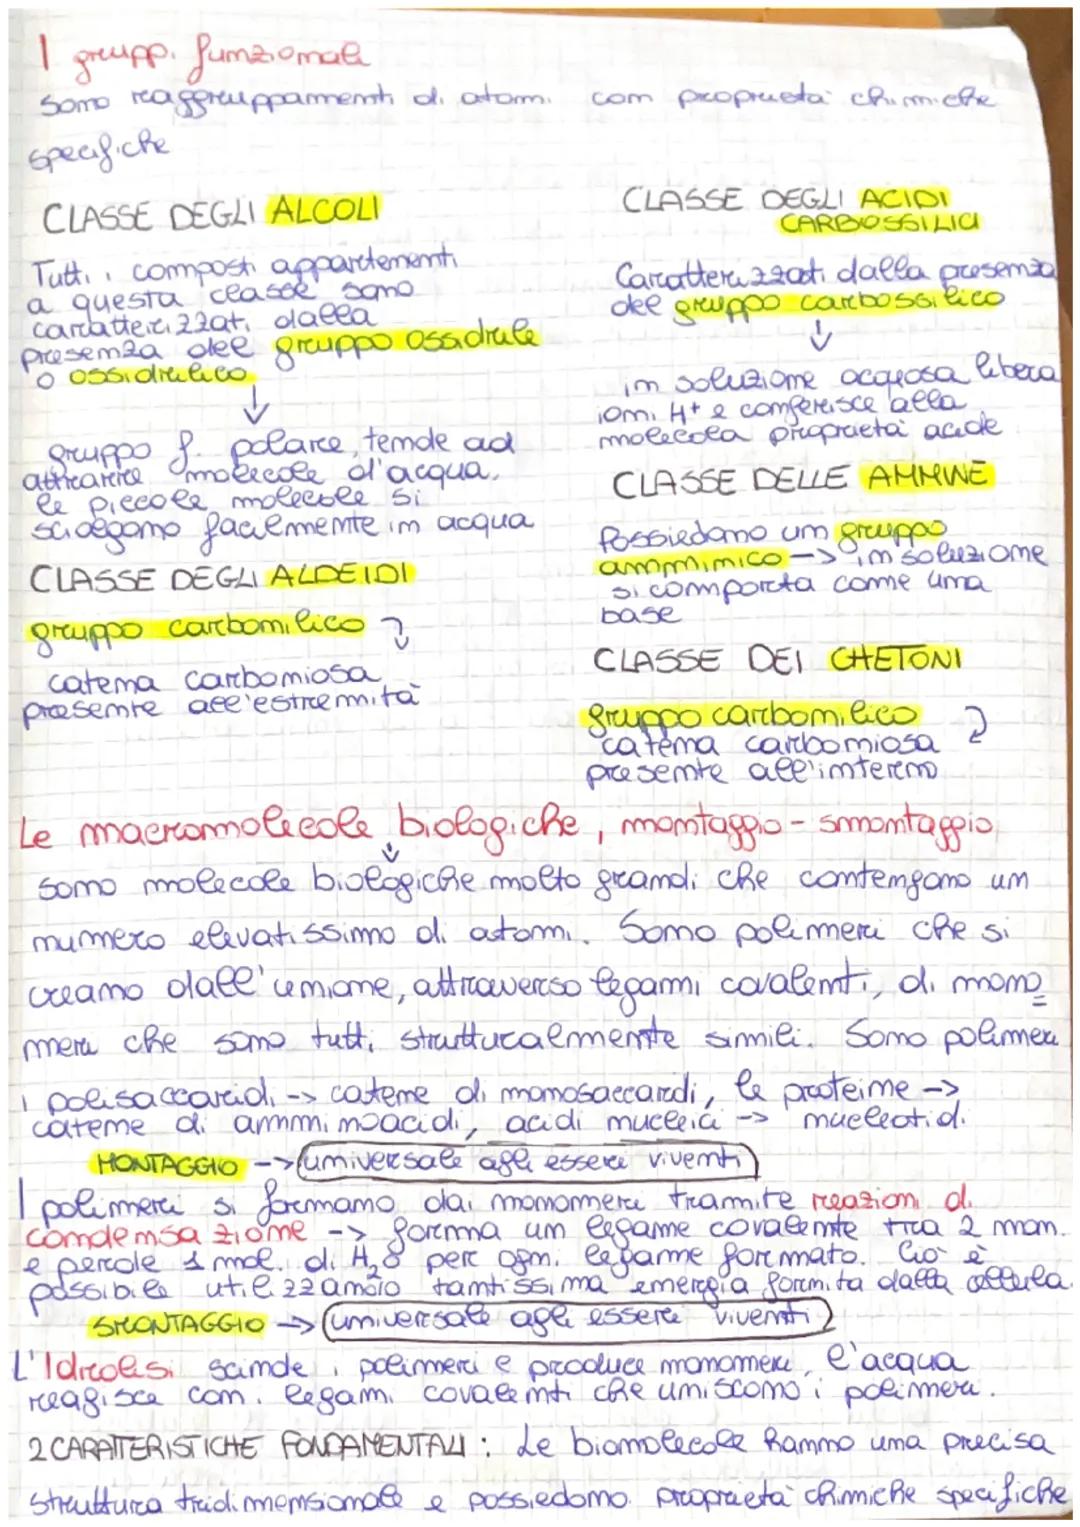 I gruppi funzionali
Sono raggruppamenti di atomi con proprietà chimiche
specifiche
CLASSE DEGLI ALCOLI
Tutti i composti appartenenti
a questa classe sono
caratterizzati dalla
presenza del gruppo ossidrile
o ossidrilico
↓
gruppo f. polare, tende ad
attrarre molecole d'acqua,
le piccole molecole si
sciolgono facilmente in acqua
CLASSE DEGLI ALDEIDI
gruppo carbonilico
catena carboniosa
presente all'estremità
CLASSE DEGLI ACIDI
CARBOSSILICI
Caratterizzati dalla presenza
del gruppo carbossilico
↓
in soluzione acquosa libera
ioni H+ e conferisce alla
molecola proprietà acide
CLASSE DELLE AMMINE
Possiedono un gruppo
amminico --> in soluzione
si comporta come una
base
CLASSE DEI CHETONI
gruppo carbonilico
catena carboniosa
presente all'interno
Le macromolecole biologiche, montaggio - smontaggio
↓
sono molecole biologiche molto grandi che contengono un
numero elevatissimo di atomi. Sono polimeri che si
creano dall'unione, attraverso legami covalenti, di mono
meri che sono tutti strutturalmente simili. Sono polimeri
i polisaccaridi -> catene di monosaccaridi, le proteine ->
catene di amminoacidi, acidi nucleici -> nucleotidi.
MONTAGGIO -> universale agli esseri viventi
I polimeri si formano dai monomeri tramite reazioni di
condensazione -> forma un legame covalente tra 2 mon.
e perde 1 mol. di H₂O per ogni legame formato. Ciò è
possibile utilizzando tantissima energia fornita dalla cellula.
SMONTAGGIO -> universale agli esseri viventi
L'Idrolisi scinde i polimeri e produce monomeri, l'acqua
reagisce con i legami covalenti che uniscono i polimeri.
2 CARATTERISTICHE FONDAMENTALI: Le biomolecole hanno una precisa
struttura tridimensionale e possiedono proprietà chimiche specifiche